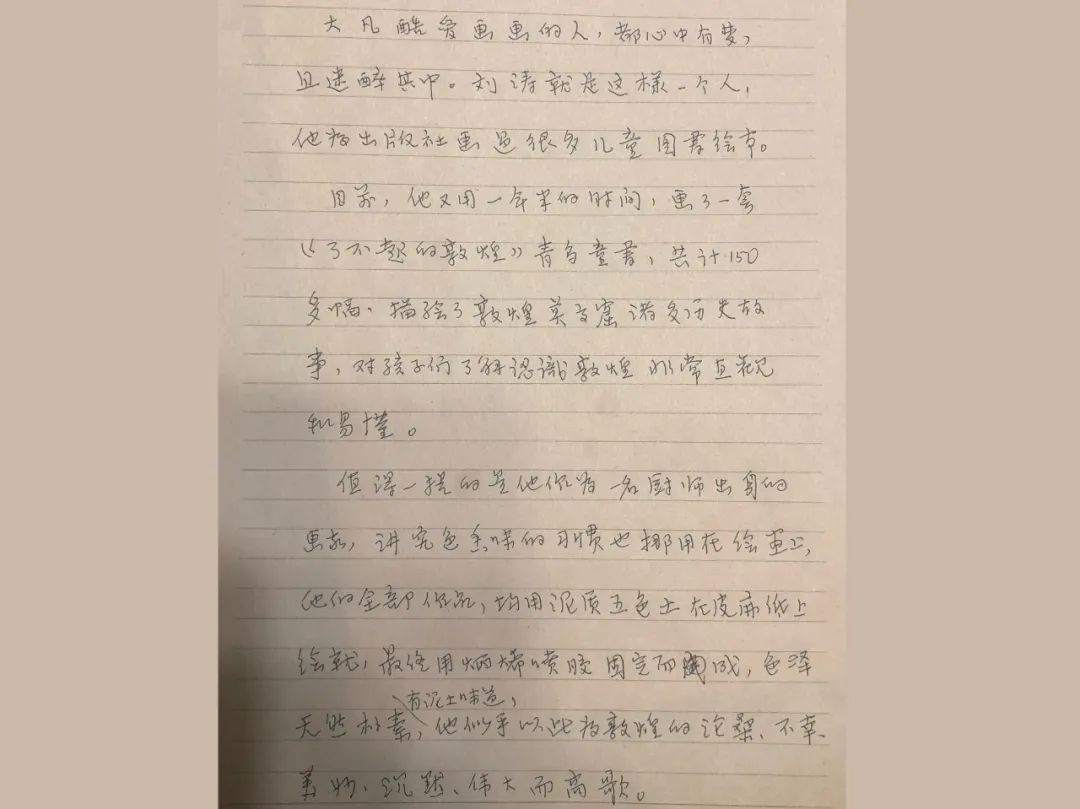 大凡酷爱画画的人，都心中有梦，
且迷醉其中。刘涛就是这样一个人，
他为出版社画过很多儿童图书绘本。
目前，他又用一年半的时间，画了一套
《了不起的敦煌》青鸟童书，共计150
多幅、描绘了敦煌莫高窟诸多历史故
事，对孩子们了解認識敦煌非常直观
和易懂。
值得一提的是他作为一名厨师出身的
画家，讲究色香味的习惯也挪用在绘画上，
他的全部作品，均用泥质五色土在皮麻纸上
绘就，最终用烯喷胶固定而成，色泽
有泥土味道，
天然朴素，他似乎以此为敦煌的沧桑、不幸、
美妙、沉默、伟大而高歌。